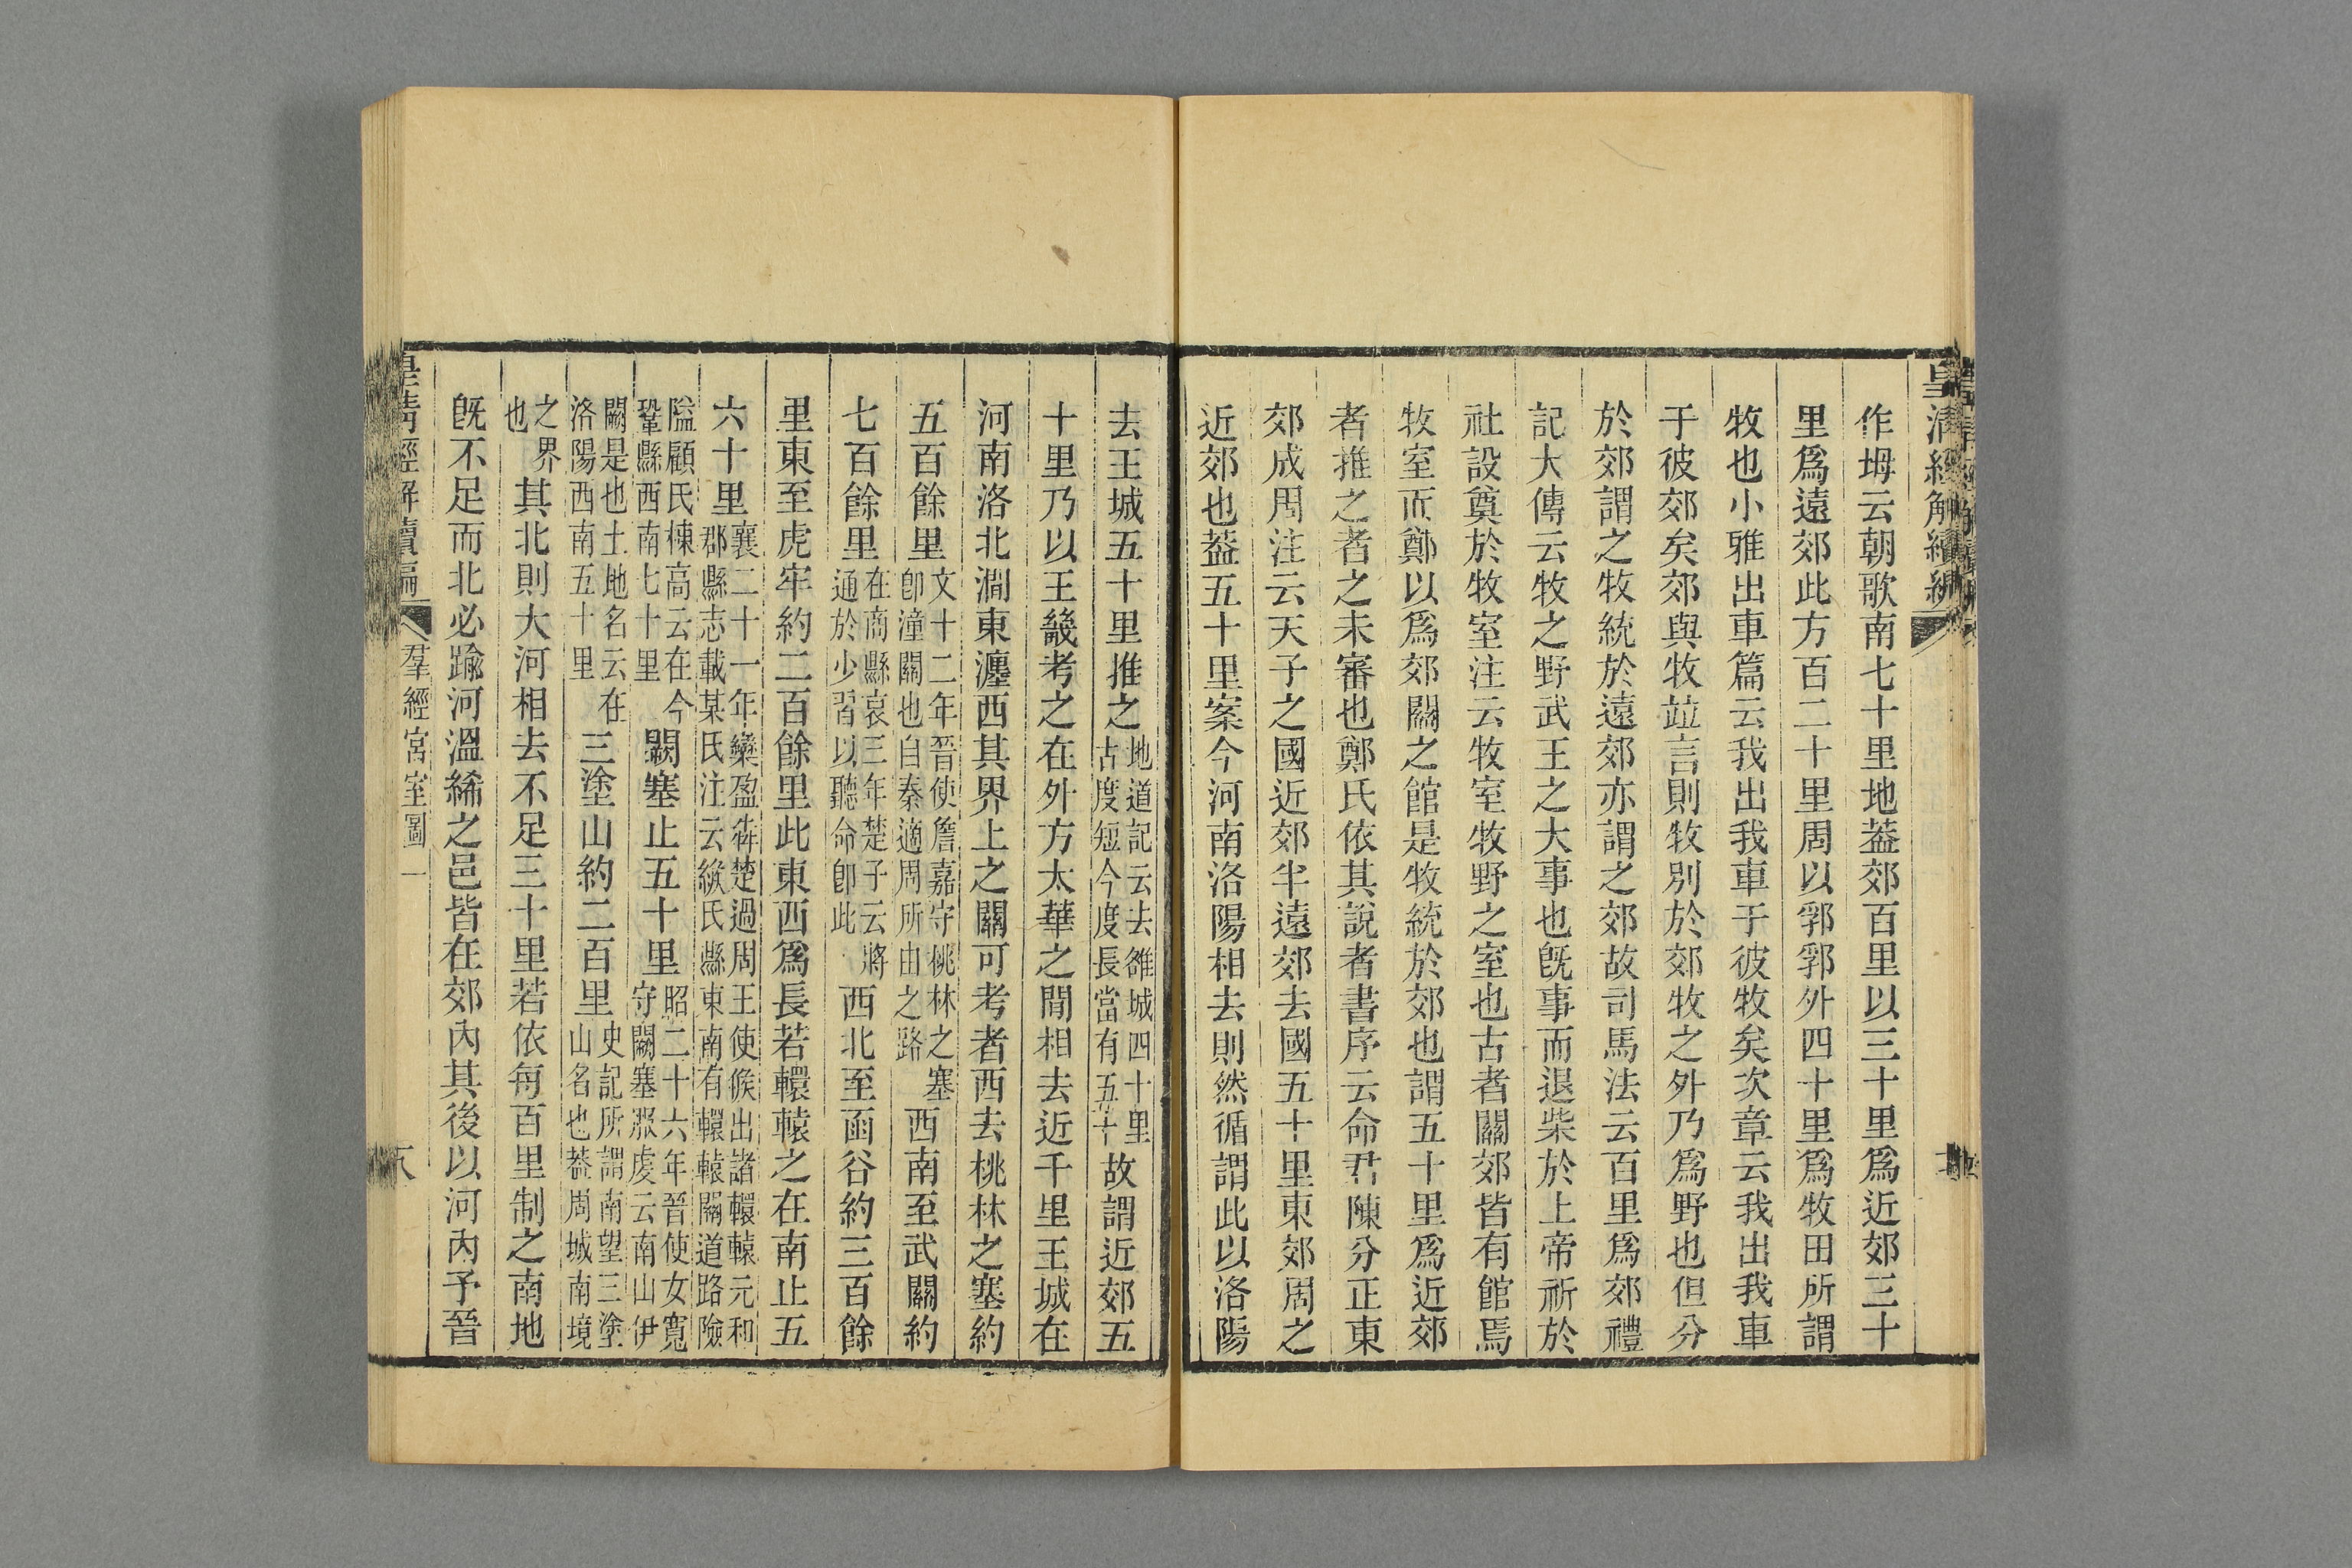 皇清經解續編
作坶云朝歌南七十里地葢郊百里以三十里爲近郊三十
里爲遠郊此方百二十里周以郛郛外四十里爲牧田所謂
牧也小雅出車篇云我出我車于彼牧矣次章云我出我車
于彼郊矣郊與牧竝言則牧別於郊牧之外乃爲野也但分
於郊謂之牧統於遠郊亦謂之郊故司馬法云百里爲郊禮
記大傳云牧之野武王之大事也旣事而退柴於上帝祈於
社設奠於牧室注云牧室牧野之室也古者關郊皆有館焉
牧室而鄭以爲郊關之館是牧統於郊也謂五十里爲近郊
者推之者之未審也鄭氏依其說者書序云命君陳分正東
郊成周注云天子之國近郊半遠郊去國五十里東郊周之
近郊也葢五十里案今河南洛陽相去則然循謂此以洛陽
去王城五十里推之
地道記云去雒城四十里
古度短今度長當有五十
故謂近郊五
十里乃以王畿考之在外方太華之閒相去近千里王城在
河南洛北澗東瀍西其界上之關可考者西去桃林之塞約
五百餘里
文十二年晉使詹嘉守桃林之塞
卽潼關也自秦適周所由之路
西南至武關約
七百餘里
在商縣哀三年楚子云將
通於少習以聽命卽此
西北至函谷約三百餘
里東至虎牢約二百餘里此東西爲長若轘轅之在南止五
六十里
襄二十一年欒盈奔楚過周王使候出諸轘轅元和
郡縣志載某氏注云緱氏縣東南有轘轅關道路險
隘顧氏棟高云在今
鞏縣西南七十里
闕塞止五十里
昭二十六年晉使女寬
守闕塞服虔云南山伊
闕是也土地名云在
洛陽西南五十里
三塗山約二百里
史記所謂南望三塗
山名也葢周城南境
之界
也
其北則大河相去不足三十里若依每百里制之南地
旣不足而北必踰河溫絺之邑皆在郊內其後以河內予晉
皇清經解續編
羣經宮室圖一
八